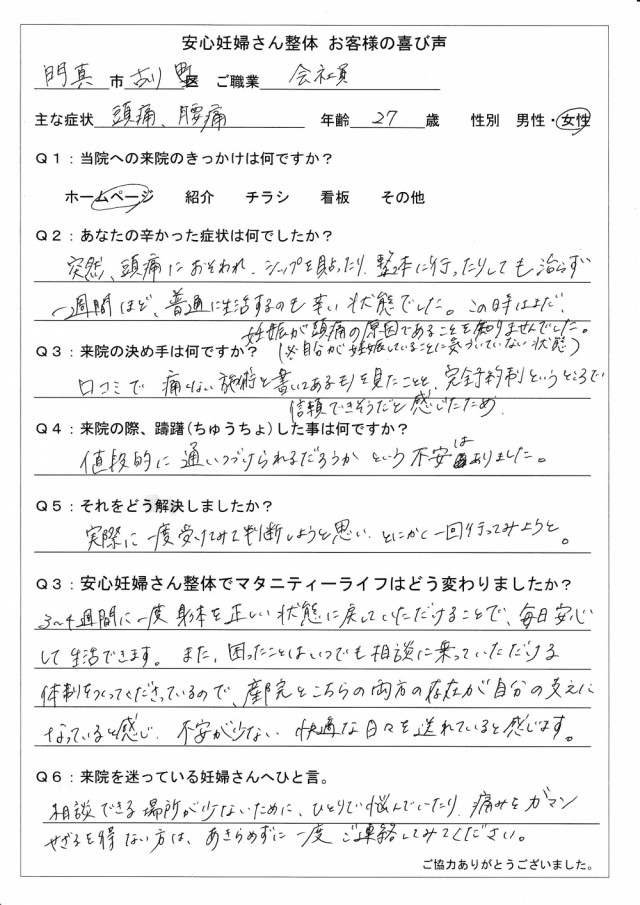 安心妊婦さん整体 お客様の喜び声
門真 市 古川 区 ご職業 会社員
主な症状 頭痛、腰痛 年齢 27 歳 性別 男性・女性
Q1：当院への来院のきっかけは何ですか？
ホームページ 紹介 チラシ 看板 その他
Q2：あなたの辛かった症状は何でしたか？
突然、頭痛におそわれ、シップを貼ったり、整体に行ったりしても治らず
一週間ほど、普通に生活するのも辛い状態でした。この時はまだ、
妊娠が頭痛の原因であることを知りませんでした。
Q3：来院の決め手は何ですか？ (※自分が妊娠していることに気づいていない状態)
口コミで 痛くない施術と書いてあるモノを見たことと、完全予約制というところで
信頼できそうだと感じたため
Q4：来院の際、躊躇(ちゅうちょ)した事は何ですか？
値段的に通いつづけられるだろうかという不安はありました。
Q5：それをどう解決しましたか？
実際に一度受けてみて判断しようと思い、とにかく一回行ってみようと。
Q3：安心妊婦さん整体でマタニティーライフはどう変わりましたか？
3〜4週間に一度身体を正しい状態に戻していただけることで、毎日安心
して生活できます。また、困ったことはいつでも相談に乗っていただける
体制をつくってくださっているので、産院とこちらの両方の存在が自分の支えに
なっていると感じ、不安が少ない 快適な日々を送れていると感じます。
Q6：来院を迷っている妊婦さんへひと言。
相談できる場所が少ないために、ひとりで悩んでいたり、痛みをガマン
せざるを得ない方は、あきらめずに一度ご連絡してみてください。
ご協力ありがとうございました。